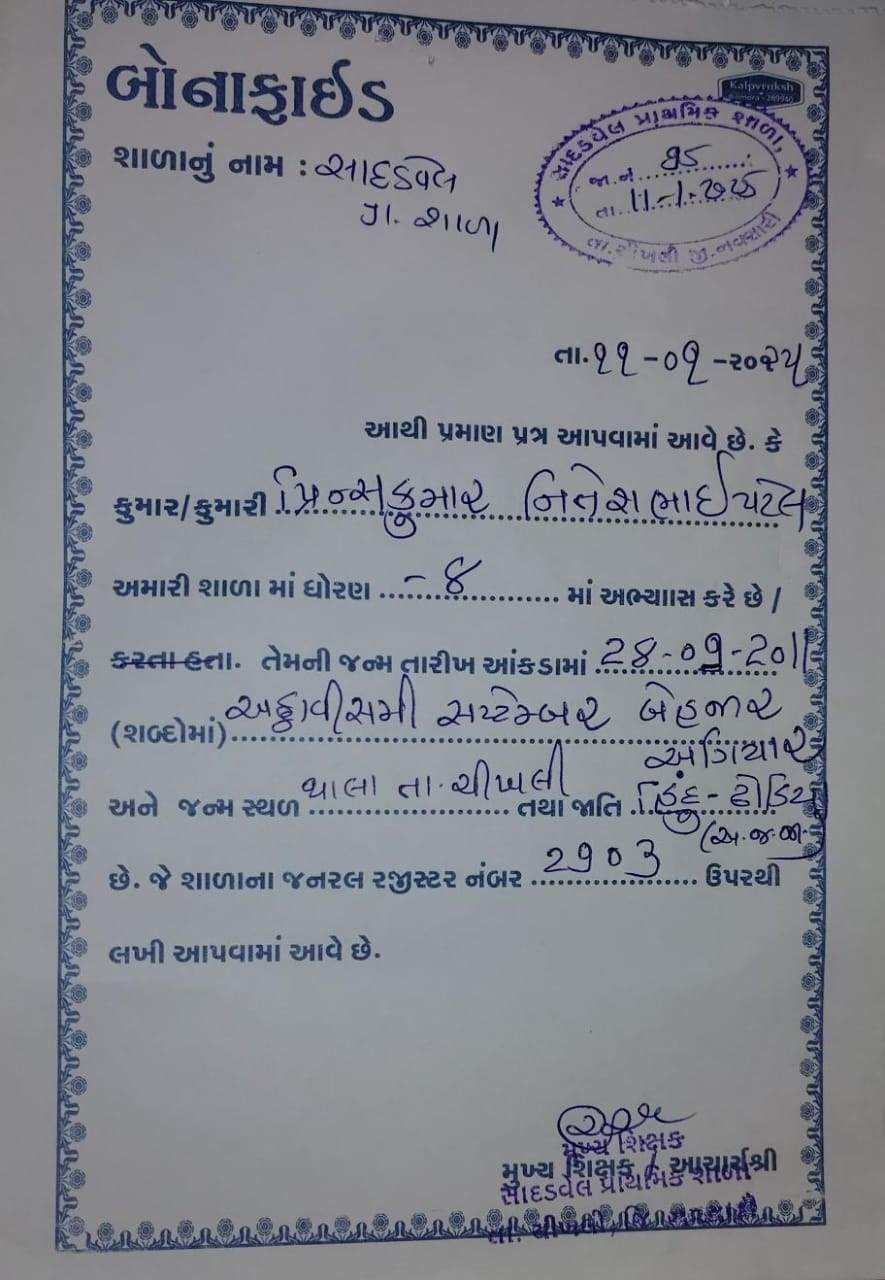 બોનાફાઈડ
Kalpvruksh
શાળાનું નામ : સાદડવેલ
પ્રા. શાળા
સાદડવેલ પ્રાથમિક શાળા,
જા.નં. 95
તા. 11-1-2025
તા. ચીખલી જી. નવસારી
તા. ૧૧-૦૧-૨૦૨૫
આથી પ્રમાણ પત્ર આપવામાં આવે છે. કે
કુમાર/કુમારી પ્રિન્સકુમાર નિતેશભાઈ પટેલ
અમારી શાળા માં ધોરણ - ૪ માં અભ્યાસ કરે છે /
કરતા હતા. તેમની જન્મ તારીખ આંકડામાં 28-09-2011
(શબ્દોમાં) અઠ્ઠાવીસમી સપ્ટેમ્બર બેહજાર
અગિયાર
અને જન્મ સ્થળ થાલા તા. ચીખલી તથા જાતિ હિંદુ - ઢોડિયા
(અ.જ.જા.)
છે. જે શાળાના જનરલ રજીસ્ટર નંબર 2903 ઉપરથી
લખી આપવામાં આવે છે.
મુખ્ય શિક્ષક
મુખ્ય શિક્ષક / આચાર્યશ્રી
સાદડવેલ પ્રાથમિક શાળા
તા. ચીખલી, જિ. નવસારી